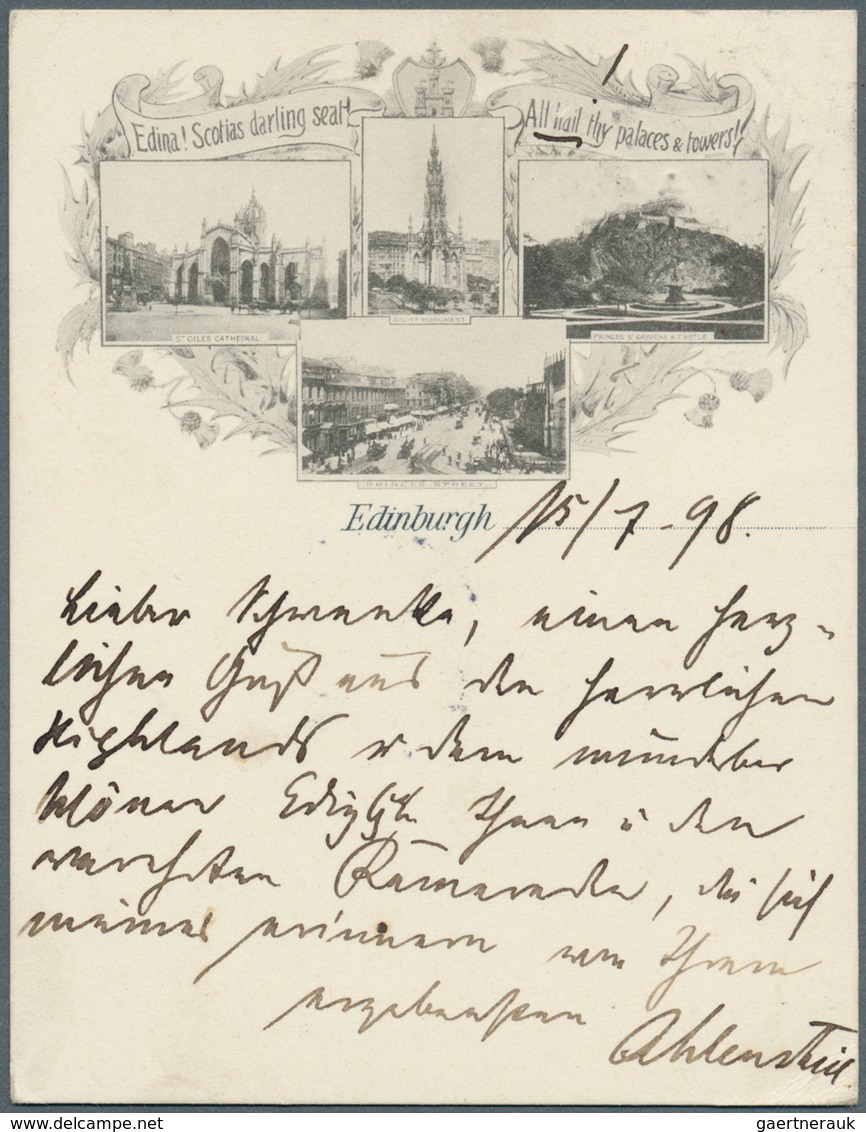 Edina! Scotias darling seat!
All hail thy palaces & towers!
ST GILES CATHEDRAL.
SCOTT MONUMENT.
PRINCES ST GARDENS & CASTLE.
PRINCES STREET.
Edinburgh 15/7-98.
Lieber Schwenke, einen herz-
lichen Gruß aus den herrlichen
Highlands u dem wunderbar
schönen Ihnen u den
Kameraden, die sich
meiner erinnern von Ihrem
ergebensten
gaertnerauk / delcampe.net